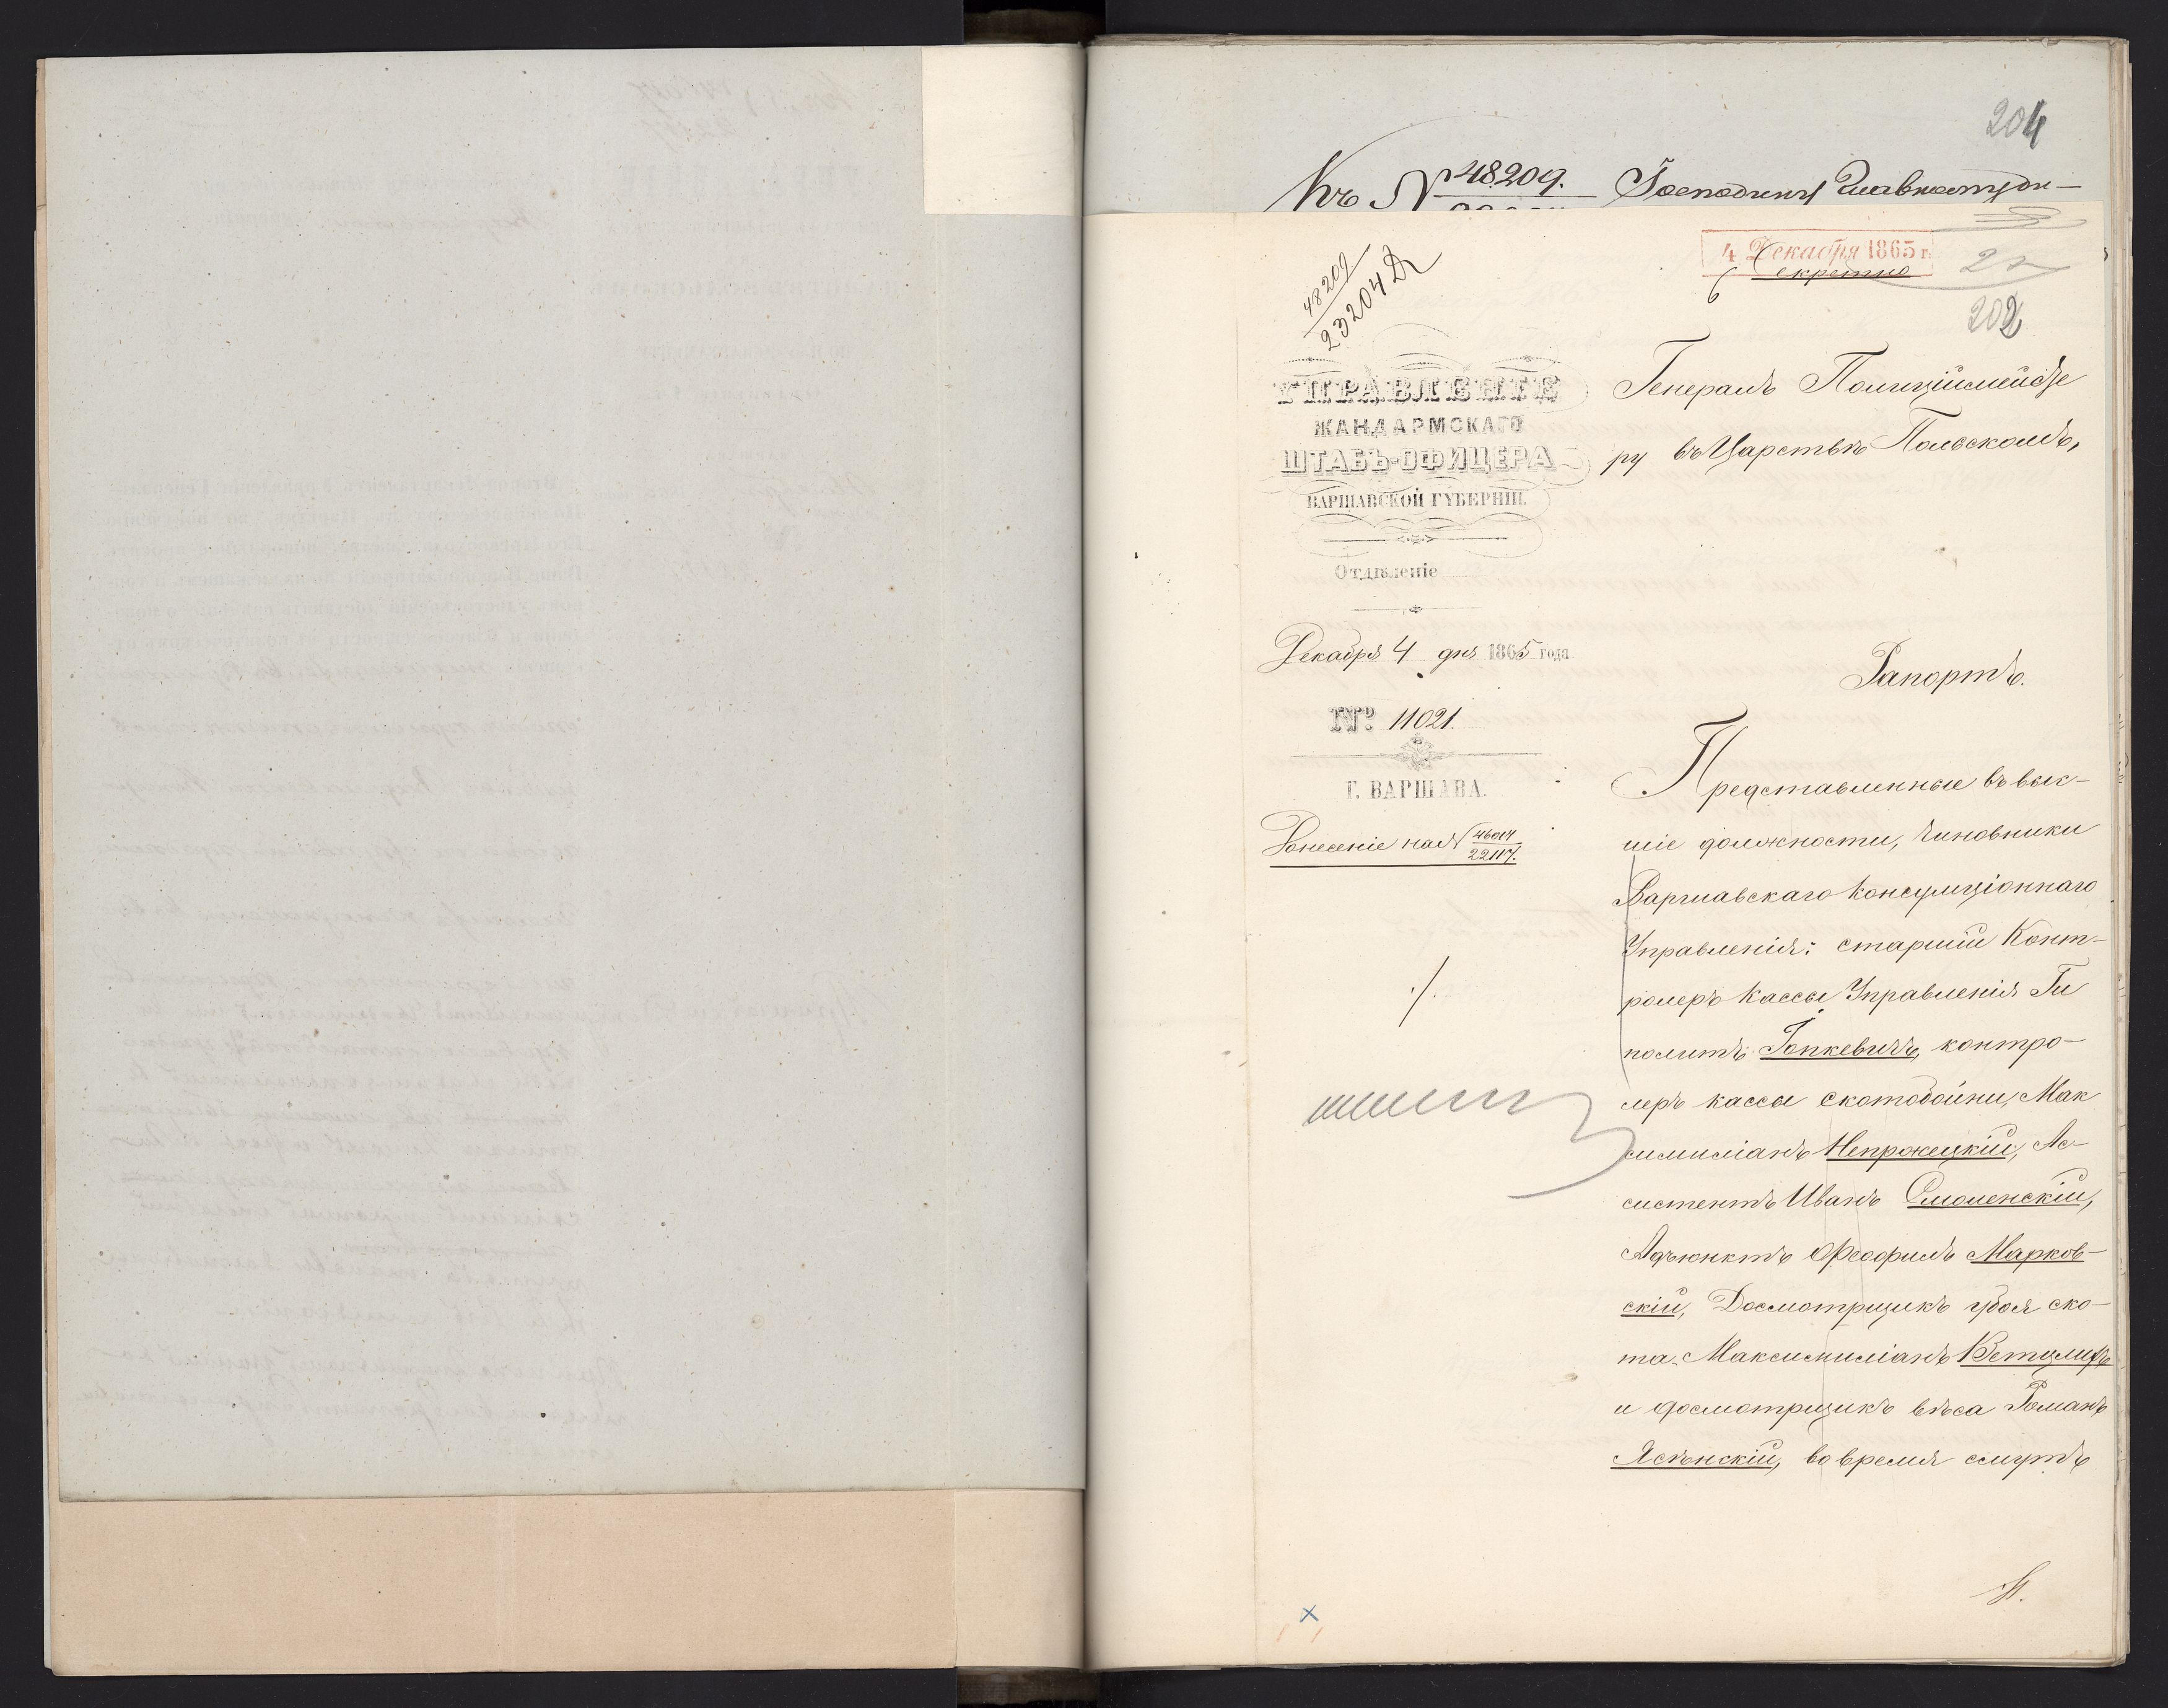 204
Къ № 48.209. Господину Главноуправ-
4 Декабря 1865 г.
Секретно
202
48209
23204
УПРАВЛЕНІЕ
ЖАНДАРМСКАГО
ШТАБЪ-ОФИЦЕРА
ВАРШАВСКОЙ ГУБЕРНІИ.
Отдѣленіе
Декабря 4 дня 1865 года
№ 11021.
Г. ВАРШАВА.
Донесеніе на №
22117.
Генералъ Полиціймейсте
ру въ Царствѣ Польскомъ,
Рапортъ.
Представленные въ выс-
шіе должности, Чиновники
Варшавскаго Консумціоннаго
Управленія: старшій Конт-
ролеръ Кассы Управленія Ги
политъ Гопкевичъ, контро-
леръ кассы скотобойни, Мак
симиліанъ Непрожецкій, Ас-
систентъ Иванъ Смоленскій,
Адъюнктъ Ѳеофилъ Марков-
скій, Досмотрщикъ убоя ско-
та. Максимиліанъ Ветцлихъ
и досмотрщикъ вѣса Романъ
Ясѣнскій, во время смутъ